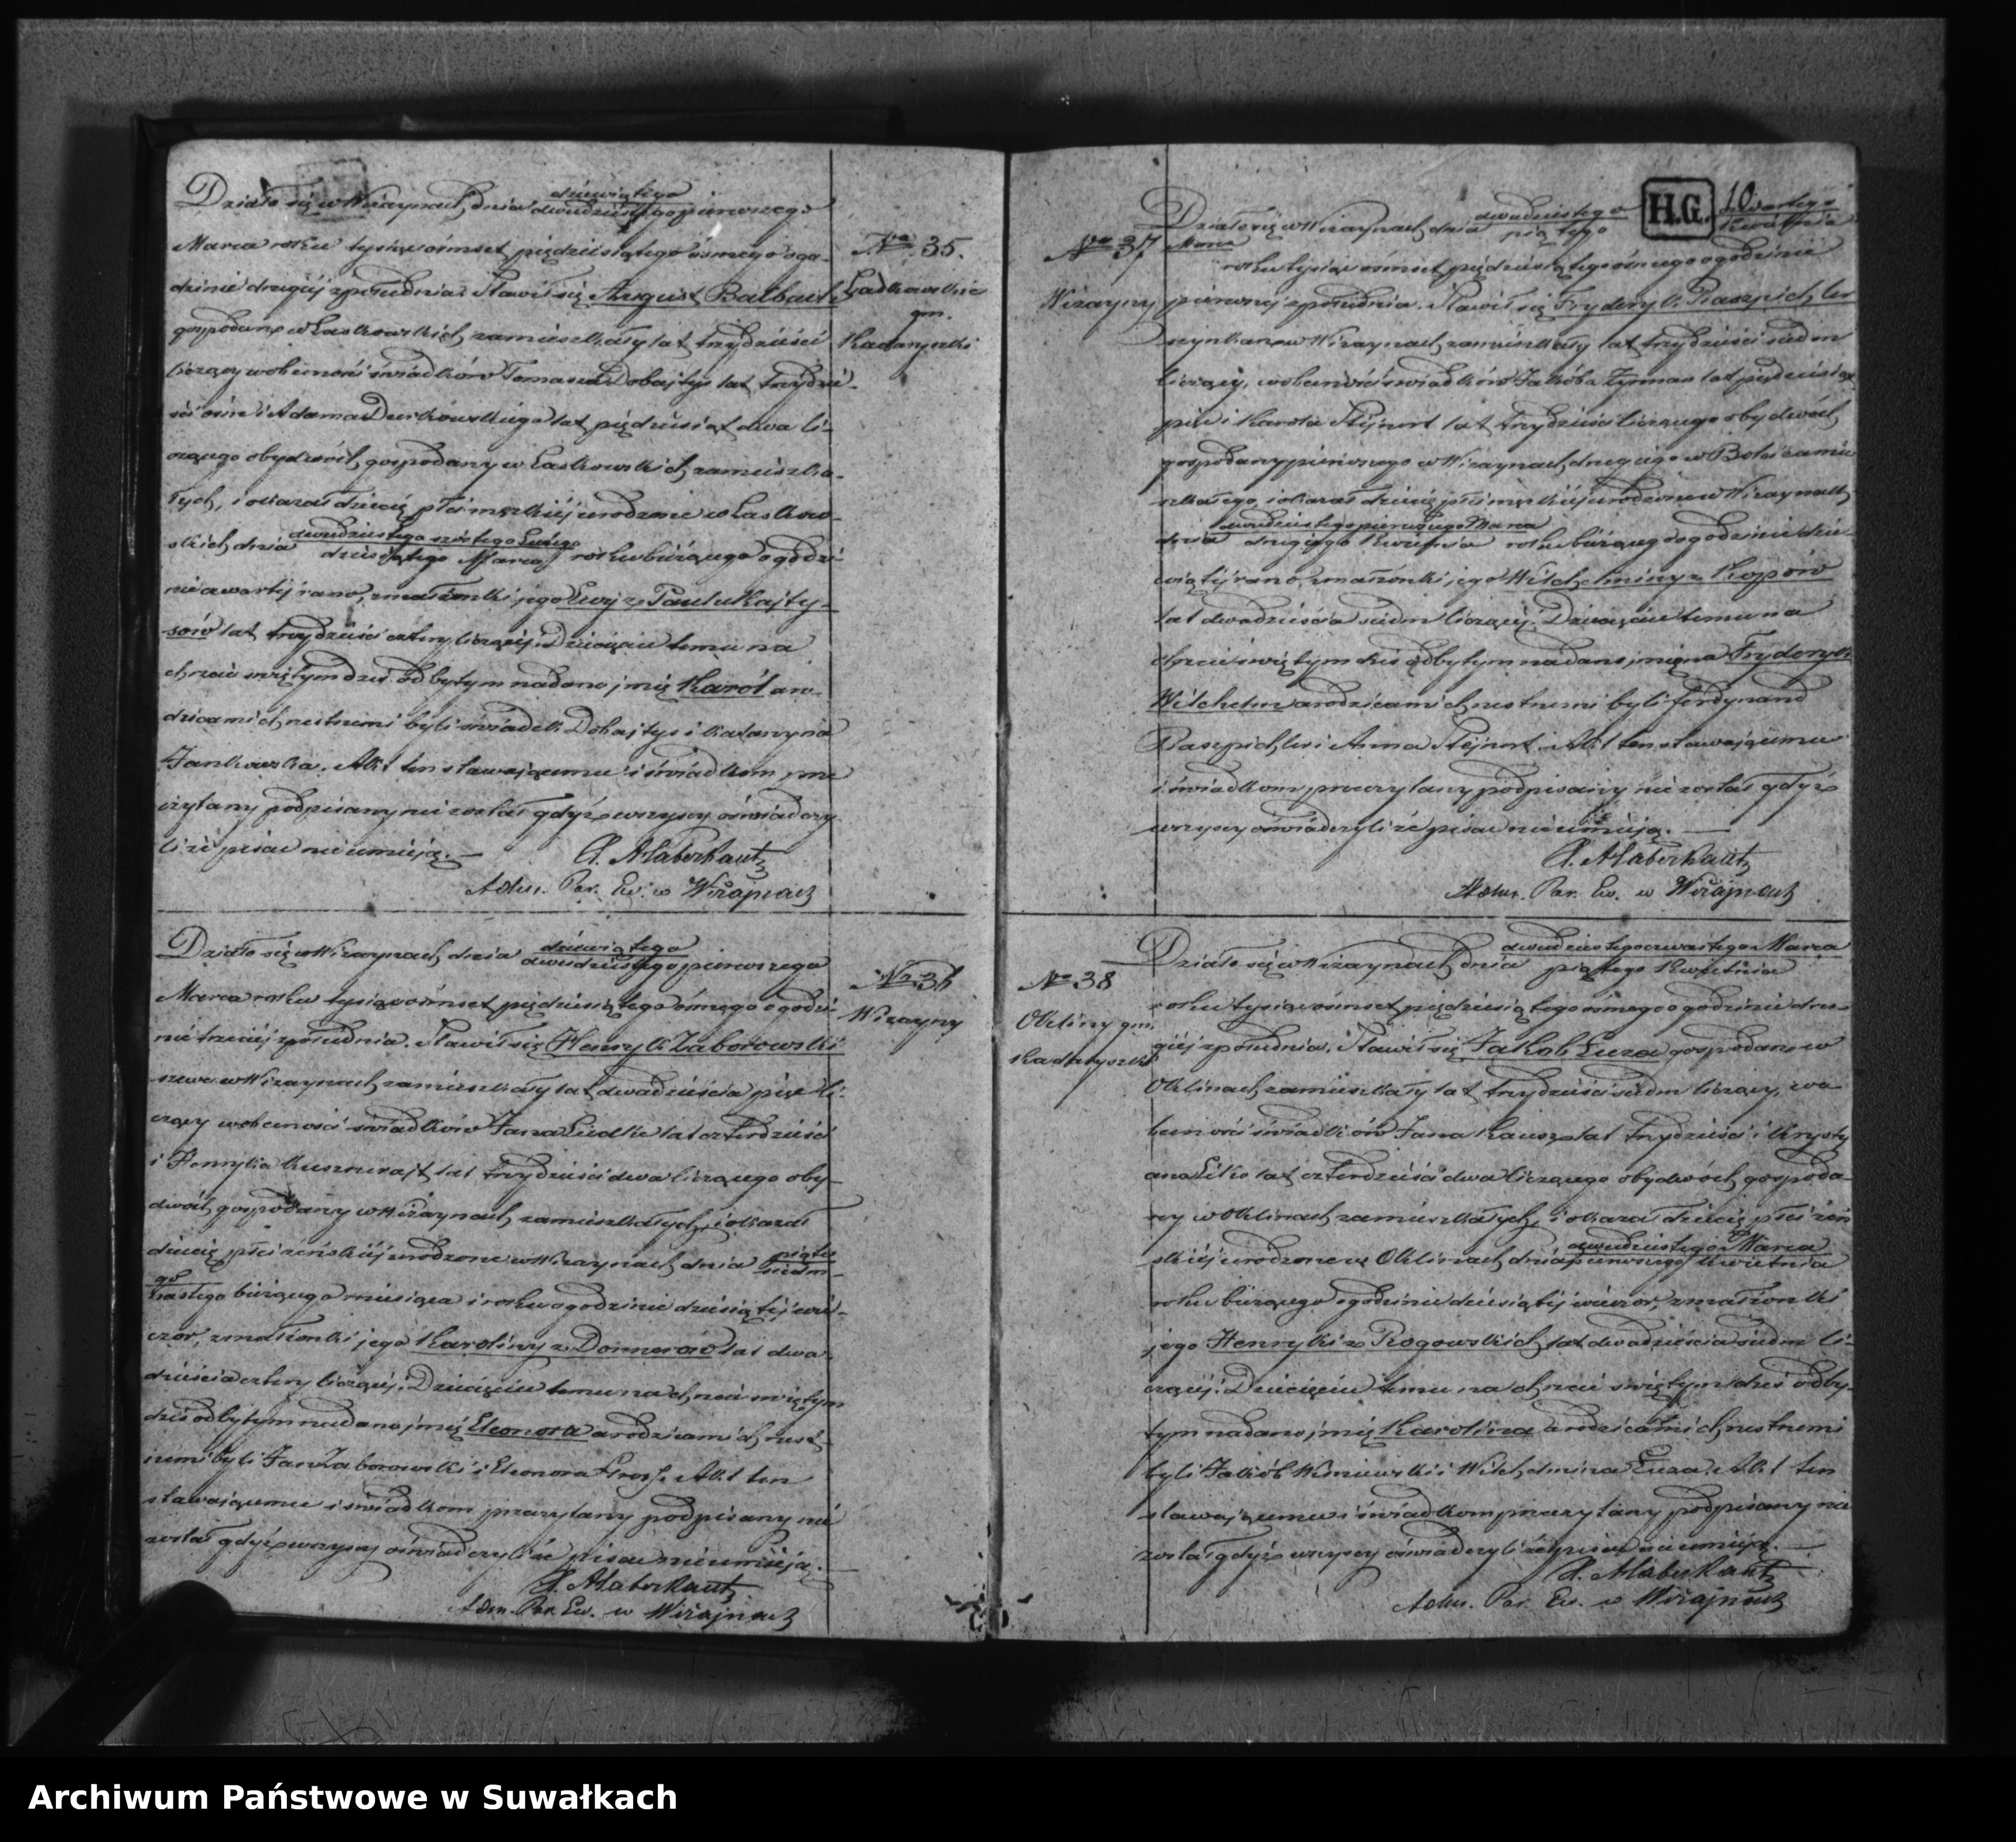 dziewiątego
Działo się w Wizaynach, dnia dwudziestego pierwszego
Marca roku tysiąc ośmset piędziesiątego ósmego o go-
dzinie drugiéj z południa. Stawił się August Balbach
gospodarz w Laskowskich zamieszkały lat trzydzieści
liczący w obecności świadków Tomasza Dobajtys lat trzydzie-
ści ośm i Adama Durkowskiego lat pięćdziesiąt dwa li-
czącego obydwóch gospodarzy w Laskowskich zamieszka-
łych, i okazał dziecię płci męzkiéj urodzone w Laskow-
dwudziestego szóstego Lutego
skich dnia dziesiątego Marca roku bieżącego o godzi-
nie czwartéj rano, z małżonki jego Ewy z Paulukajty-
sów lat trzydzieści cztery liczącéj. Dziecięciu temu na
chrzcie świętym dziś odbytym nadano imię Karól a ro-
dzicami chrzestnemi byli świadek Dobajtys i Katarzyna
Jankowska. Akt ten stawającemu i świadkom prze
czytany podpisany nie został gdyż wszyscy oświadczy-
li że pisać nie umieją. —
Adm. Par. Ew. w Wiżajnach
No 35.
gm.
Kadaryszki
dziewiątego
Działo się w Wizaynach, dnia dwudziestego pierwszego
Marca roku tysiąc ośmset piędziesiątego ósmego o godzi-
nie trzeciéj z południa. Stawił się Henryk Zaborowski
szewc w Wizaynach zamieszkały lat dwadzieścia pięć li-
czący w obecności świadków Jana Liedke lat czterdzieści
i Henryka Kusznerajt lat trzydzieści dwa liczącego oby-
dwóch gospodarzy w Wizaynach zamieszkałych, i okazał
dziecię płci żeńskiéj urodzone w Wizaynach dnia piąte siedm-
go
nastego bieżącego miesiąca i roku o godzinie dziesiątéj wie-
czór, z małżonki jego Karoliny z Donnerów lat dwa-
dzieścia cztery liczącéj. Dziecięciu temu na chrzcie świętym
dziś odbytym nadano imię Eleonora a rodzicami chrzest-
nemi byli Jan Zaborowski i Eleonora Grosz. Akt ten
stawającemu i świadkom przeczytany podpisany nie
został gdyż wszyscy oświadczyli że pisać nie umieją. —
Adm. Par. Ew. w Wiżajnach
No 36
Wizayny
H.G. 10
No 37
Wizayny
dwudziestego czwartego
Działo się w Wizaynach dnia piątego Kwietnia
Marca
roku tysiąc ośmset pięćdziesiątego ósmego o godzinie
pierwszéj z południa. Stawił się Fryderyk Raszpichler
szynkarz w Wizaynach zamieszkały lat trzydzieści siedm
liczący, w obecności świadków Jakóba Zyman lat pięćdziesiąt
pięć i Karola Stejnort lat trzydzieści liczącego obydwóch
gospodarzy pierwszego w Wizaynach drugiego w Bolciach zamie
szkałego, i okazał dziecię płci męzkiéj urodzone w Wizaynach
dwudziestego pierwszego Marca
dnia drugiego Kwietnia roku bieżącego o godzinie dzie-
wiątéj rano, z małżonki jego Wilchelminy z Kozpów
lat dwadzieścia siedm liczącéj. Dziecięciu temu na
chrzcie świętym dziś odbytym nadano imiona Fryderyk
Wilchelm a rodzicami chrzestnemi byli Ferdynand
Raszpichler i Anna Stejnort. Akt ten stawającemu
i świadkom przeczytany podpisany nie został gdyż
wszyscy oświadczyli że pisać nie umieją. —
Adm. Par. Ew. w Wiżajnach
No 38
Okliny gm.
Kadaryszki
dwudziestego czwartego Marca
Działo się w Wizaynach dnia piątego Kwietnia
roku tysiąc ośmset pięćdziesiątego ósmego o godzinie dru-
giéj z południa. Stawił się Jakób Luza gospodarz w
Oklinach zamieszkały lat trzydzieści siedm liczący, w o-
becności świadków Jana Kausz lat trzydzieści i Krysty
ana Litko lat czterdzieści dwa liczącego obydwóch gospoda-
rzy w Oklinach zamieszkałych, i okazał dziecię płci żeń
dwudziestego Marca
skiéj urodzone w Oklinach dnia pierwszego Kwietnia
roku bieżącego o godzinie dziesiątéj wieczór, z małżonki
jego Henryki z Rogowskich lat dwadzieścia siedm li-
czącéj. Dziecięciu temu na chrzcie świętym dziś odby-
tym nadano imię Karolina a rodzicami chrzestnemi
byli Jakób Wiszniewski i Wilchelmina Luza. Akt ten
stawającemu i świadkom przeczytany podpisany nie
został gdyż wszyscy oświadczyli że pisać nie umieją. —
Adm. Par. Ew. w Wiżajnach
Archiwum Państwowe w Suwałkach